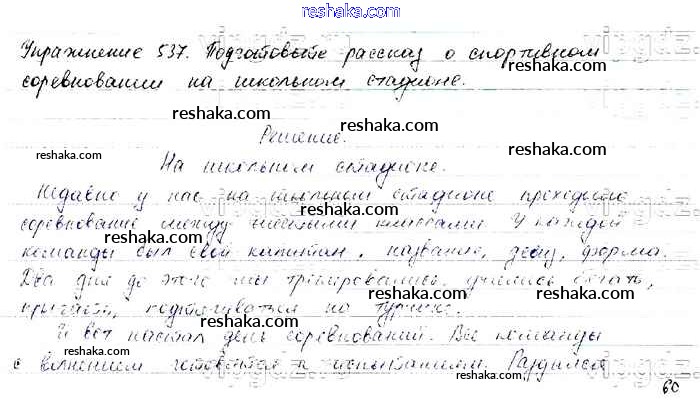 reshaka.com
Упражнение 537. Подготовьте рассказ о спортивном
соревновании на школьном стадионе.
reshaka.com
reshaka.com
Решение.
reshaka.com
reshaka.com
На школьном стадионе.
Недавно у нас на школьном стадионе проходило
reshaka.com
соревнование между шестыми классами. У каждой
reshaka.com
команды был свой капитан, название, девиз, форма.
reshaka.com
Два дня до этого мы тренировались, учились бегать,
прыгать, подтягиваться на турнике.
reshaka.com
И вот настал день соревнований. Все команды
с волнением готовятся к испытаниям. Раздился
reshaka.com
60